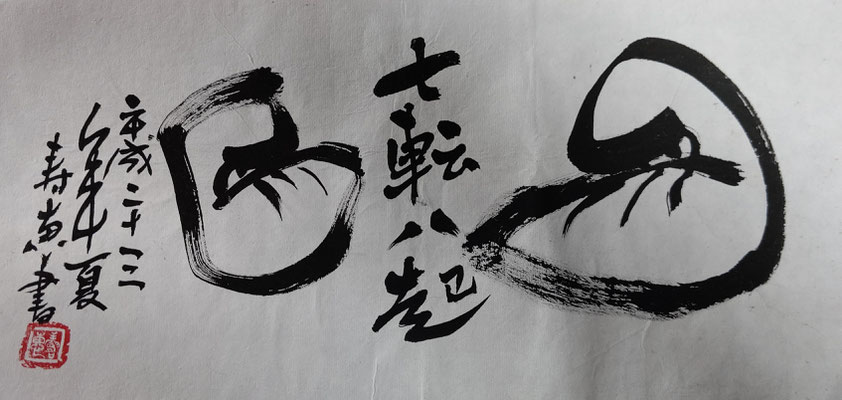 七転八起
平成二十三
年夏
寿恵書